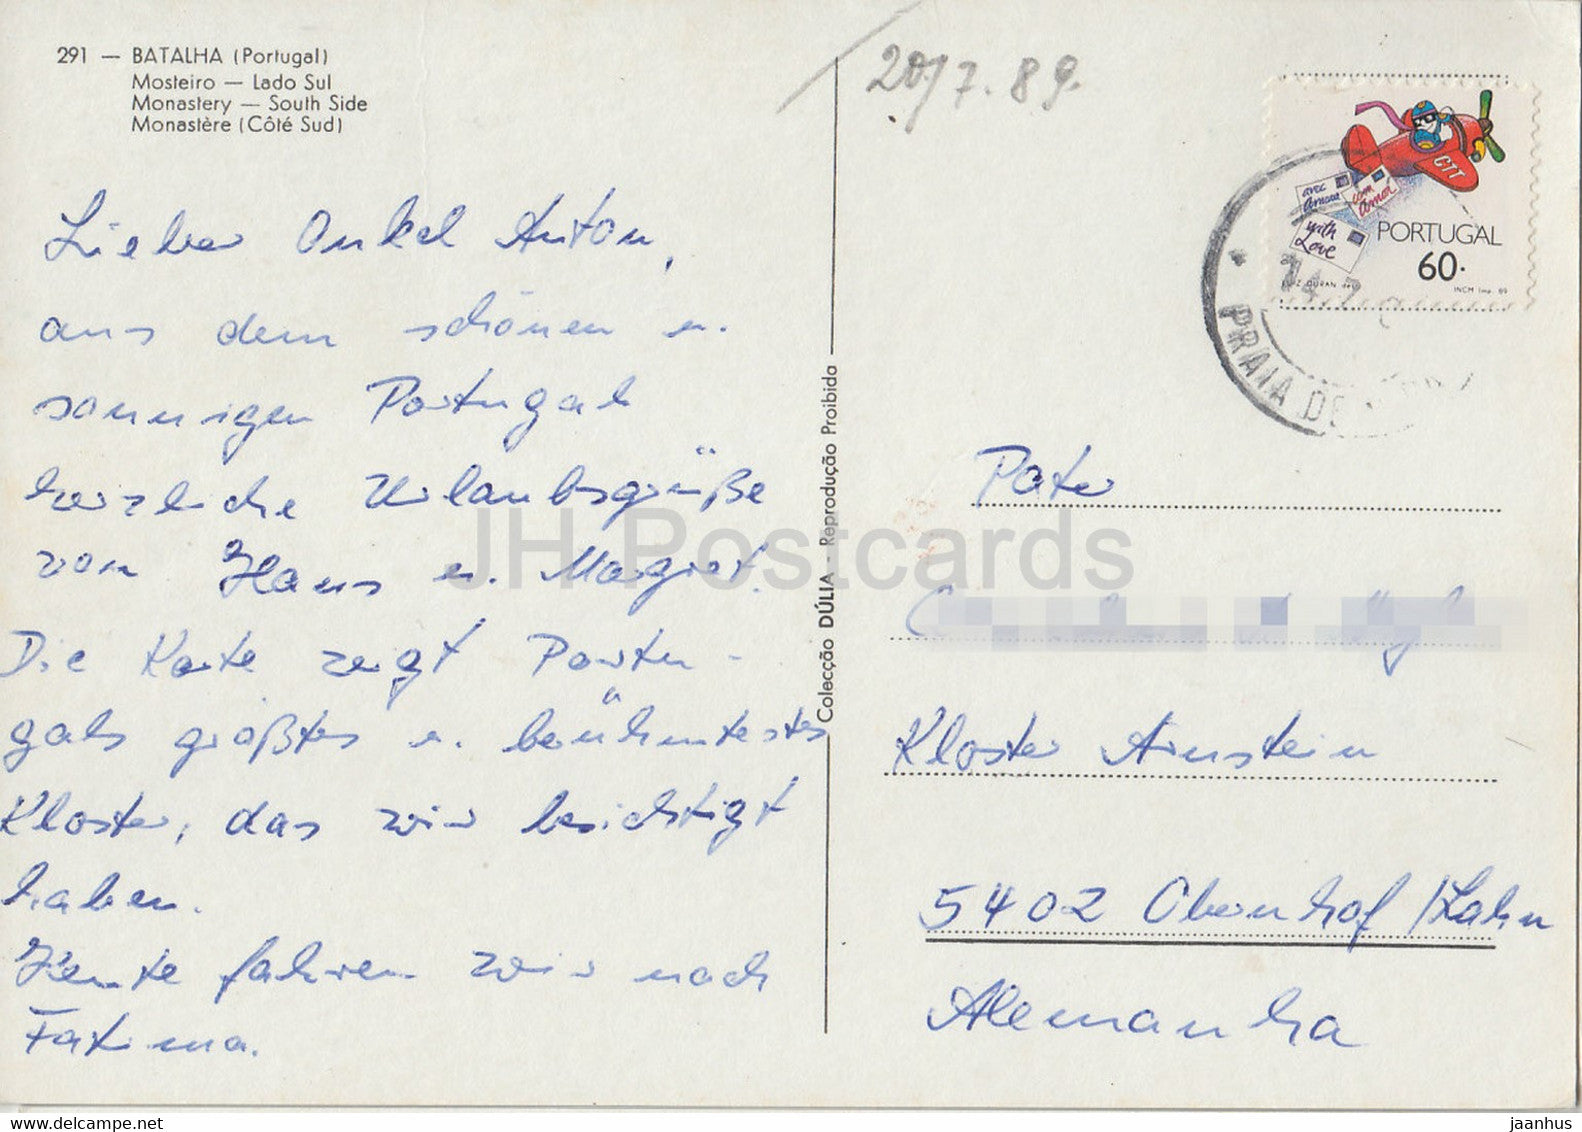 291 — BATALHA (Portugal)
Mosteiro — Lado Sul
Monastery — South Side
Monastère (Côté Sud)
Lieber Onkel Anton,
aus dem schönen u.
sonnigen Portugal
herzliche Urlaubsgrüße
von Hans u. Margret.
Die Karte zeigt Portu-
gals größtes u. berühmtestes
Kloster, das wir besichtigt
haben.
Heute fahren wir nach
Fatima.
Colecção DÚLIA - Reprodução Proibida
20/7.89.
avec amour
com amor
with Love
CTT
PORTUGAL
60.
LUIZ DURAN
INCM Imp. 89
PRAIA DE
Pater
Kloster Arnstein
5402 Obernhof /Lahn
Alemanha
JH Postcards
www.delcampe.net
jaanhus